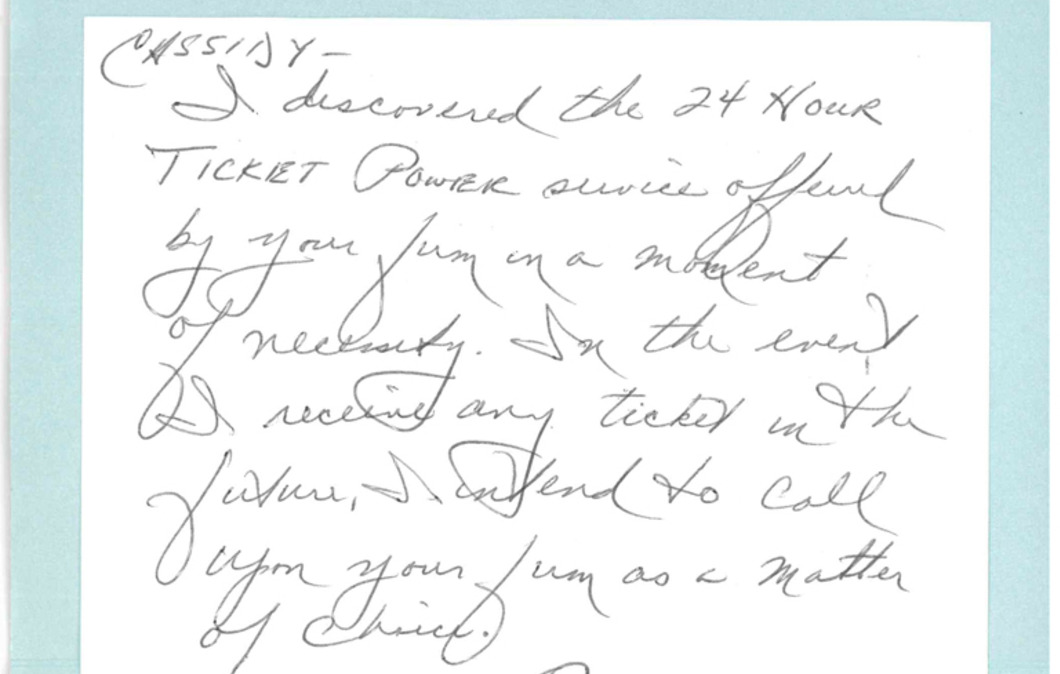 CASSIDY -
I discovered the 24 HOUR
TICKET POWER service offered
by your firm in a moment
of necessity. In the event
I receive any ticket in the
future, I intend to call
upon your firm as a matter
of choice.